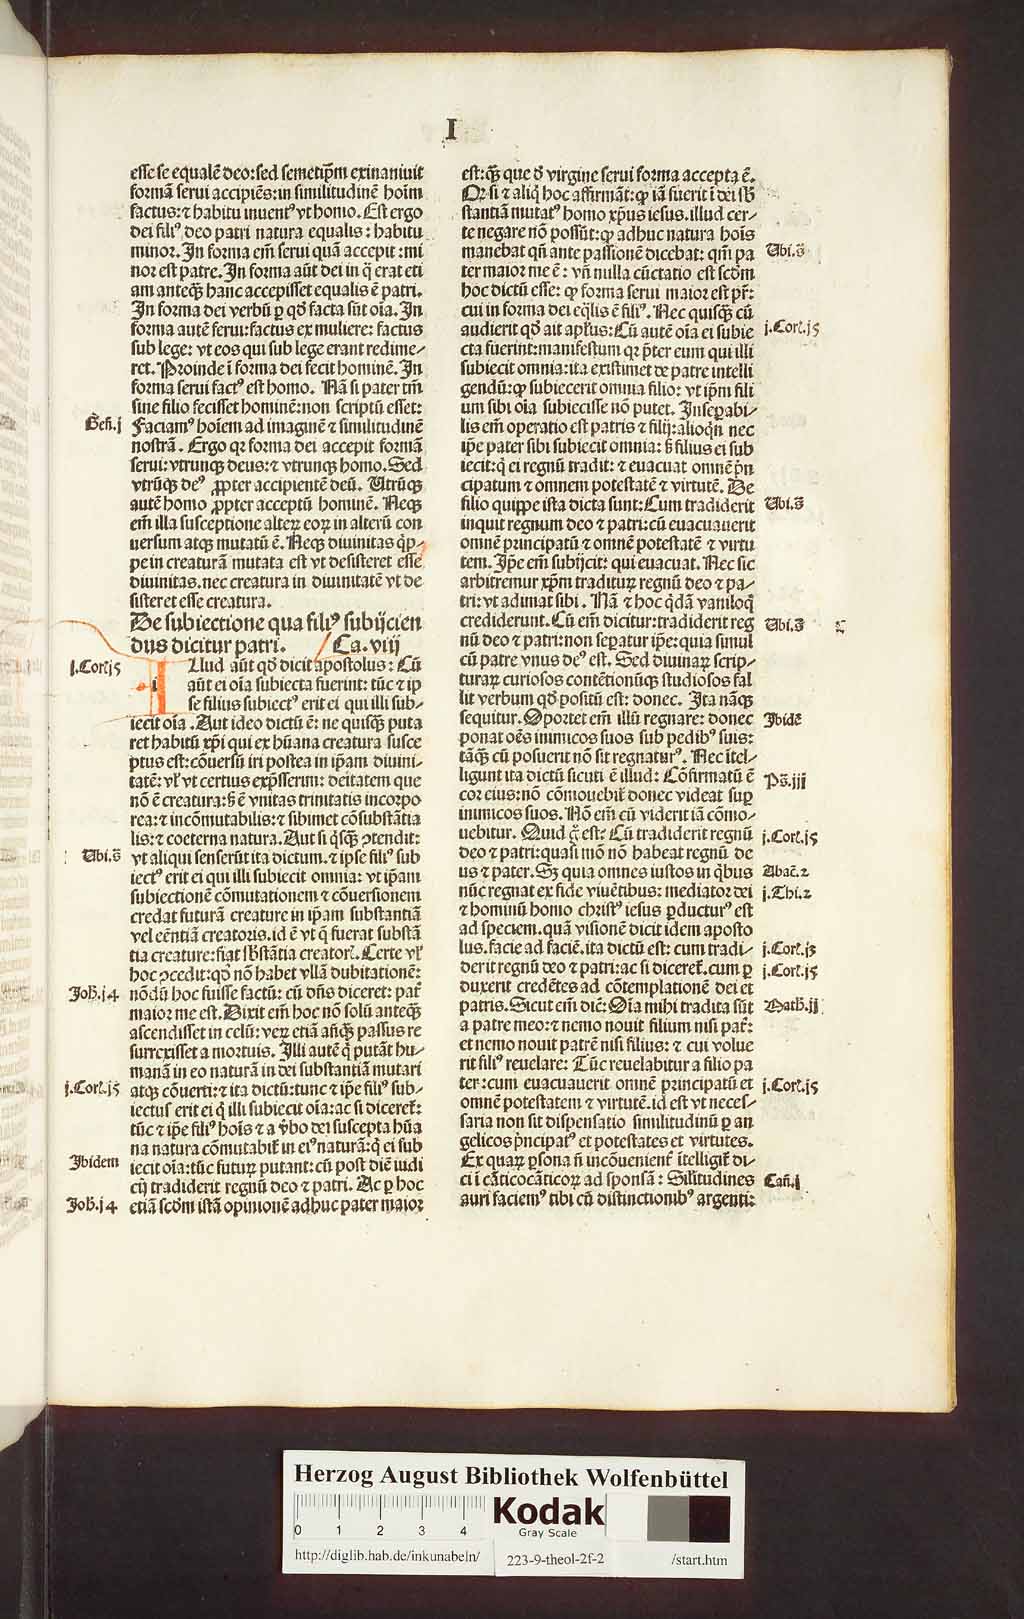 I
esse se equalē deo: sed semetip̄m exinaniuit
formā serui accipiēs: in similitudinē hoīm
factus: ⁊ habitu inuentꝰ vt homo. Est ergo
dei filiꝰ deo patri natura equalis: habitu
minor. In forma em̄ serui quā accepit: mi
nor est patre. In forma aūt dei in q̄ erat eti
am anteq̄ȝ hanc accepisset equalis ē patri.
In forma dei verbū ꝑ qd̄ facta sūt oīa. In
forma autē serui: factus ex muliere: factus
sub lege: vt eos qui sub lege erant redime⸗
ret. Proinde ī forma dei fecit hominē. In
forma serui factꝰ est homo. Nā si pater tm̄
sine filio fecisset hominē: non scriptū esset:
Geñ.j
Faciamꝰ hoīem ad imaginē ⁊ similitudinē
nostrā. Ergo qꝛ forma dei accepit formā
serui: vtrunqȝ deus: ⁊ vtrunqȝ homo. Sed
vtrūqȝ deꝰ ꝓpter accipientē deū. Utrūqȝ
autē homo ꝓpter acceptū hominē. Neqȝ
em̄ illa susceptione alteꝝ eoꝝ in alterū con
uersum atqȝ mutatū ē. Neqȝ diuinitas q̄p⸗
pe in creaturā mutata est vt desisteret esse
diuinitas. nec creatura in diuinitatē vt de
sisteret esse creatura.
De subiectione qua filiꝰ subijcien
dus dicitur patri. Ca. viij
j.Corī.j5
i
Llud aūt qd̄ dicit apostolus: Cū
aūt ei oīa subiecta fuerint: tūc ⁊ ip
se filius subiectꝰ erit ei qui illi sub⸗
iecit oīa. Aut ideo dictū ē: ne quisqȝ puta
ret habitū xp̄i qui ex hūana creatura susce
ptus est: cōuersū iri postea in ip̄am diuini⸗
tatē: vl̓ vt certius exp̄sserim: deitatem que
nō ē creatura: s̄ ē vnitas trinitatis incorpo
rea: ⁊ incōmutabilis: ⁊ sibimet cōsubstātia
lis: ⁊ coeterna natura. Aut si q̄sqȝ ↄtendit:
Ubi.s̄
vt aliqui senserūt ita dictum. ⁊ ipse filiꝰ sub
iectꝰ erit ei qui illi subiecit omnia: vt ip̄am
subiectionē cōmutationem ⁊ cōuersionem
credat futurā creature in ip̄am substantiā
vel eēntiā creatoris. id ē vt q̄ fuerat substā
tia creature: fiat sb̄stātia creatorī. Certe vl̓
hoc ↄcedit: qd̄ nō habet vllā dubitationē:
Joh̄.j4
nōdū hoc fuisse factū: cū dn̄s diceret: pat̓
maior me est. Dixit em̄ hoc nō solū anteqȝ
ascendisset in celū: veꝝ etiā an̄qȝ passus re
surrexisset a mortuis. Illi autē q̄ putāt hu⸗
manā in eo naturā in dei substantiā mutari
j.Corī.j5
atqȝ cōuerti: ⁊ ita dictū: tunc ⁊ ip̄e filiꝰ sub⸗
iectus erit ei q̄ illi subiecit oīa: ac si diceret̓:
tūc ⁊ ip̄e filiꝰ hoīs ⁊ a v̓bo dei suscepta hūa
na natura cōmutabit̓ in eiꝰ naturā: q̄ ei sub
Ibidem
iecit oīa: tūc futuꝝ putant: cū post diē iudi
cij tradiderit regnū deo ⁊ patri. Ac ꝑ hoc
Joh̄.j4
etiā scd̄m istā opinionē adhuc pater maior
est: qȝ que d̄ virgine serui forma accepta ē.
Qꝛ si ⁊ aliq̄ hoc affirmāt: ꝙ iā fuerit ī dei sb̄
stantiā mutatꝰ homo xp̄us iesus. illud cer⸗
te negare nō possūt: ꝙ adhuc natura hoīs
Ubi.s̄
manebat qn̄ ante passionē dicebat: qm̄ pa
ter maior me ē: vn̄ nulla cūctatio est scd̄m
hoc dictū esse: ꝙ forma serui maior est pr̄:
cui in forma dei eq̄lis ē filiꝰ. Nec quisqȝ cū
j.Corī.j5
audierit qd̄ ait apl̄us: Cū autē oīa ei subie
cta fuerint: manifestum qꝛ p̄ter eum qui illi
subiecit omnia: ita existimet de patre intelli
gendū: ꝙ subiecerit omnia filio: vt ip̄m fili
um sibi oīa subiecisse nō putet. Inseꝑabi⸗
lis em̄ operatio est patris ⁊ filij: alioqn̄ nec
ip̄e pater sibi subiecit omnia: s̄ filius ei sub
iecit: q̄ ei regnū tradit: ⁊ euacuat omnē p̄n
cipatum ⁊ omnem potestatē ⁊ virtutē. De
Ubi.s̄
filio quippe ista dicta sunt: Cum tradiderit
inquit regnum deo ⁊ patri: cū euacuauerit
omnē principatū ⁊ omnē potestatē ⁊ virtu
tem. Ip̄e em̄ subijcit: qui euacuat. Nec sic
arbitremur xp̄m traditurꝫ regnū deo ⁊ pa⸗
tri: vt adimat sibi. Nā ⁊ hoc q̄dā vaniloq̄
Ubi.s̄
crediderunt. Cū em̄ dicitur: tradiderit reg
nū deo ⁊ patri: non seꝑatur ip̄e: quia simul
cū patre vnus deꝰ est. Sed diuinaꝝ scrip⸗
turaꝝ curiosos contētionūqȝ studiosos fal
lit verbum qd̄ positū est: donec. Ita nāqȝ
Ibidē
sequitur. Oportet em̄ illū regnare: donec
ponat oēs inimicos suos sub pedibꝰ suis:
tāqȝ cū posuerit nō sit regnaturꝰ. Nec ītel⸗
Ps̄.iij
ligunt ita dictū sicuti ē illud: Cōfirmatū ē
cor eius: nō cōmouebit̓ donec videat suꝑ
inimicos suos. Nō em̄ cū viderit iā cōmo⸗
j.Corī.j5
uebitur. Quid g̊ est? Cū tradiderit regnū
deo ⁊ patri: quasi mō nō habeat regnū de
Abac̄.2
us ⁊ pater. Sȝ quia omnes iustos in qb̄us
j.Thi.2
nūc regnat ex fide viuētibus: mediator dei
⁊ hominū homo christꝰ iesus ꝑducturꝰ est
ad speciem. quā visionē dicit idem aposto
j.Corī.j3
lus. facie ad faciē. ita dictū est: cum tradi⸗
j.Corī.j5
derit regnū deo ⁊ patri: ac si diceret̓. cum ꝑ
duxerit credētes ad cōtemplationē dei et
Math̄.jj
patris. Sicut em̄ dic̄: Oīa mihi tradita sūt
a patre meo: ⁊ nemo nouit filium nisi pat̓:
et nemo nouit patrē nisi filius: ⁊ cui volue
rit filiꝰ reuelare: Tūc reuelabitur a filio pa
j.Corī.j5
ter: cum euacuauerit omnē principatū et
omnē potestatem ⁊ virtutē. id est vt neces⸗
saria non sit dispensatio similitudinū ꝑ an
gelicos p̄ncipatꝰ et potestates et virtutes.
Ex quaꝝ ꝑsona n̄ incōueniēnt̓ ītelligit̓ di⸗
Cañ.j
ci ī cāticocāticoꝝ ad sponsā: Silītudines
auri faciemꝰ tibi cū distinctionibꝰ argenti:
Herzog August Bibliothek Wolfenbüttel
0 1 2 3 4
Kodak
Gray Scale
http://diglib.hab.de/inkunabeln/
223-9-theol-2f-2
/start.htm